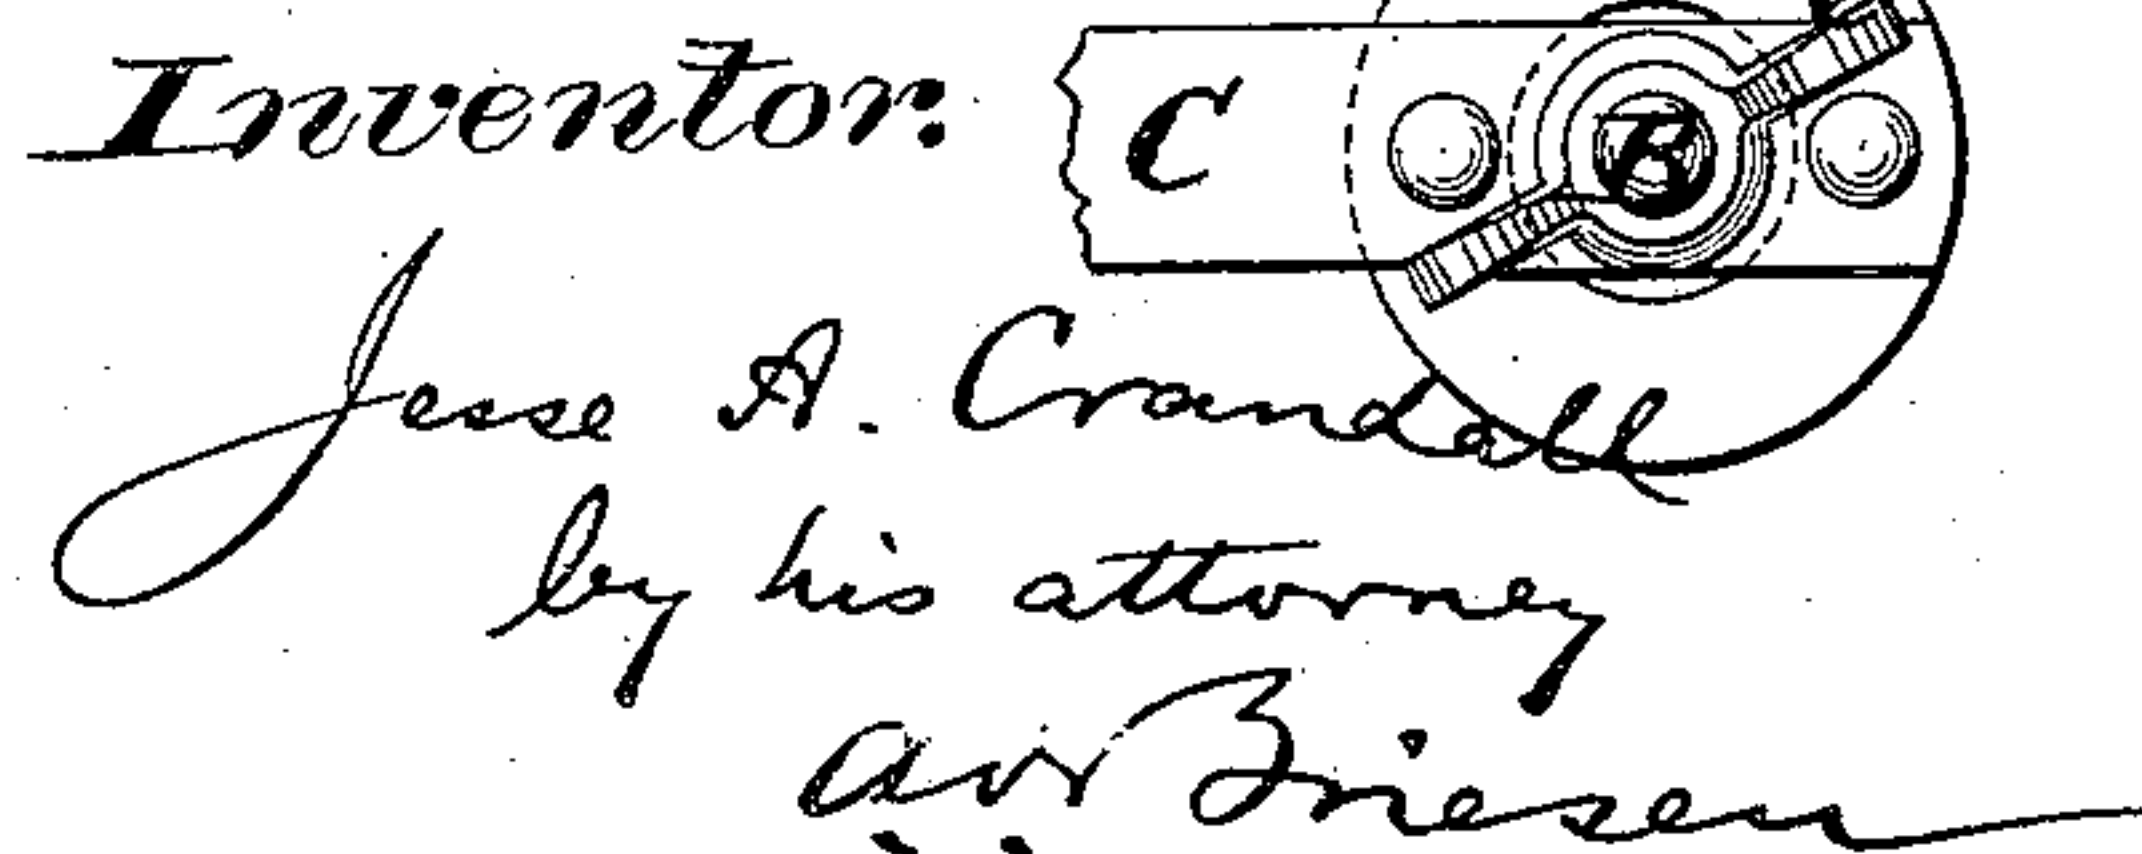 Inventor:
C
B
Jesse A. Crandall
by his attorney
A v Briesen